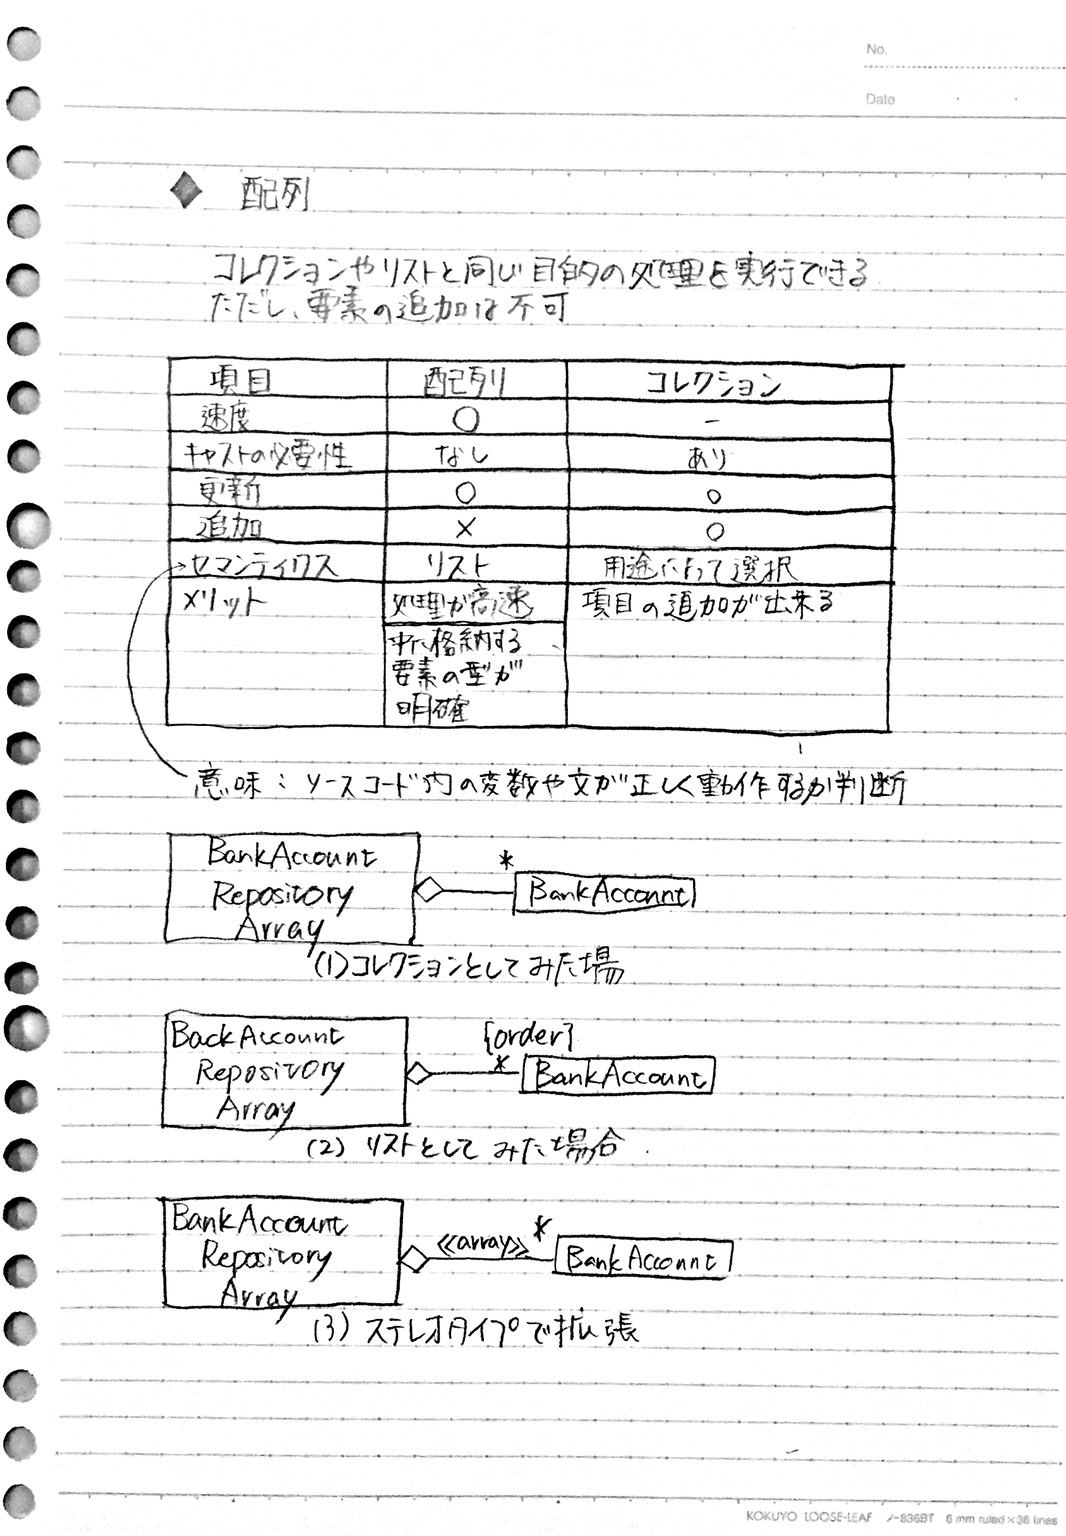 No.
Date
◆ 配列
コレクションやリストと同じ目的の処理を実行できる
ただし、要素の追加は不可
項目 配列 コレクション
速度 ○ −
キャストの必要性 なし あり
更新 ○ ○
追加 × ○
セマンティクス リスト 用途によって選択
メリット 処理が高速 項目の追加が出来る
格納する
要素の型が
明確
意味：ソースコード内の変数や文が正しく動作するか判断
BankAccount
Repository
Array
*
BankAccount
(1)コレクションとしてみた場
BackAccount
Repository
Array
{order}
*
BankAccount
(2) リストとしてみた場合
BankAccount
Repository
Array
≪array≫
*
BankAccount
(3) ステレオタイプで拡張
KOKUYO LOOSE-LEAF ノ-836BT 6 mm ruled×36 lines